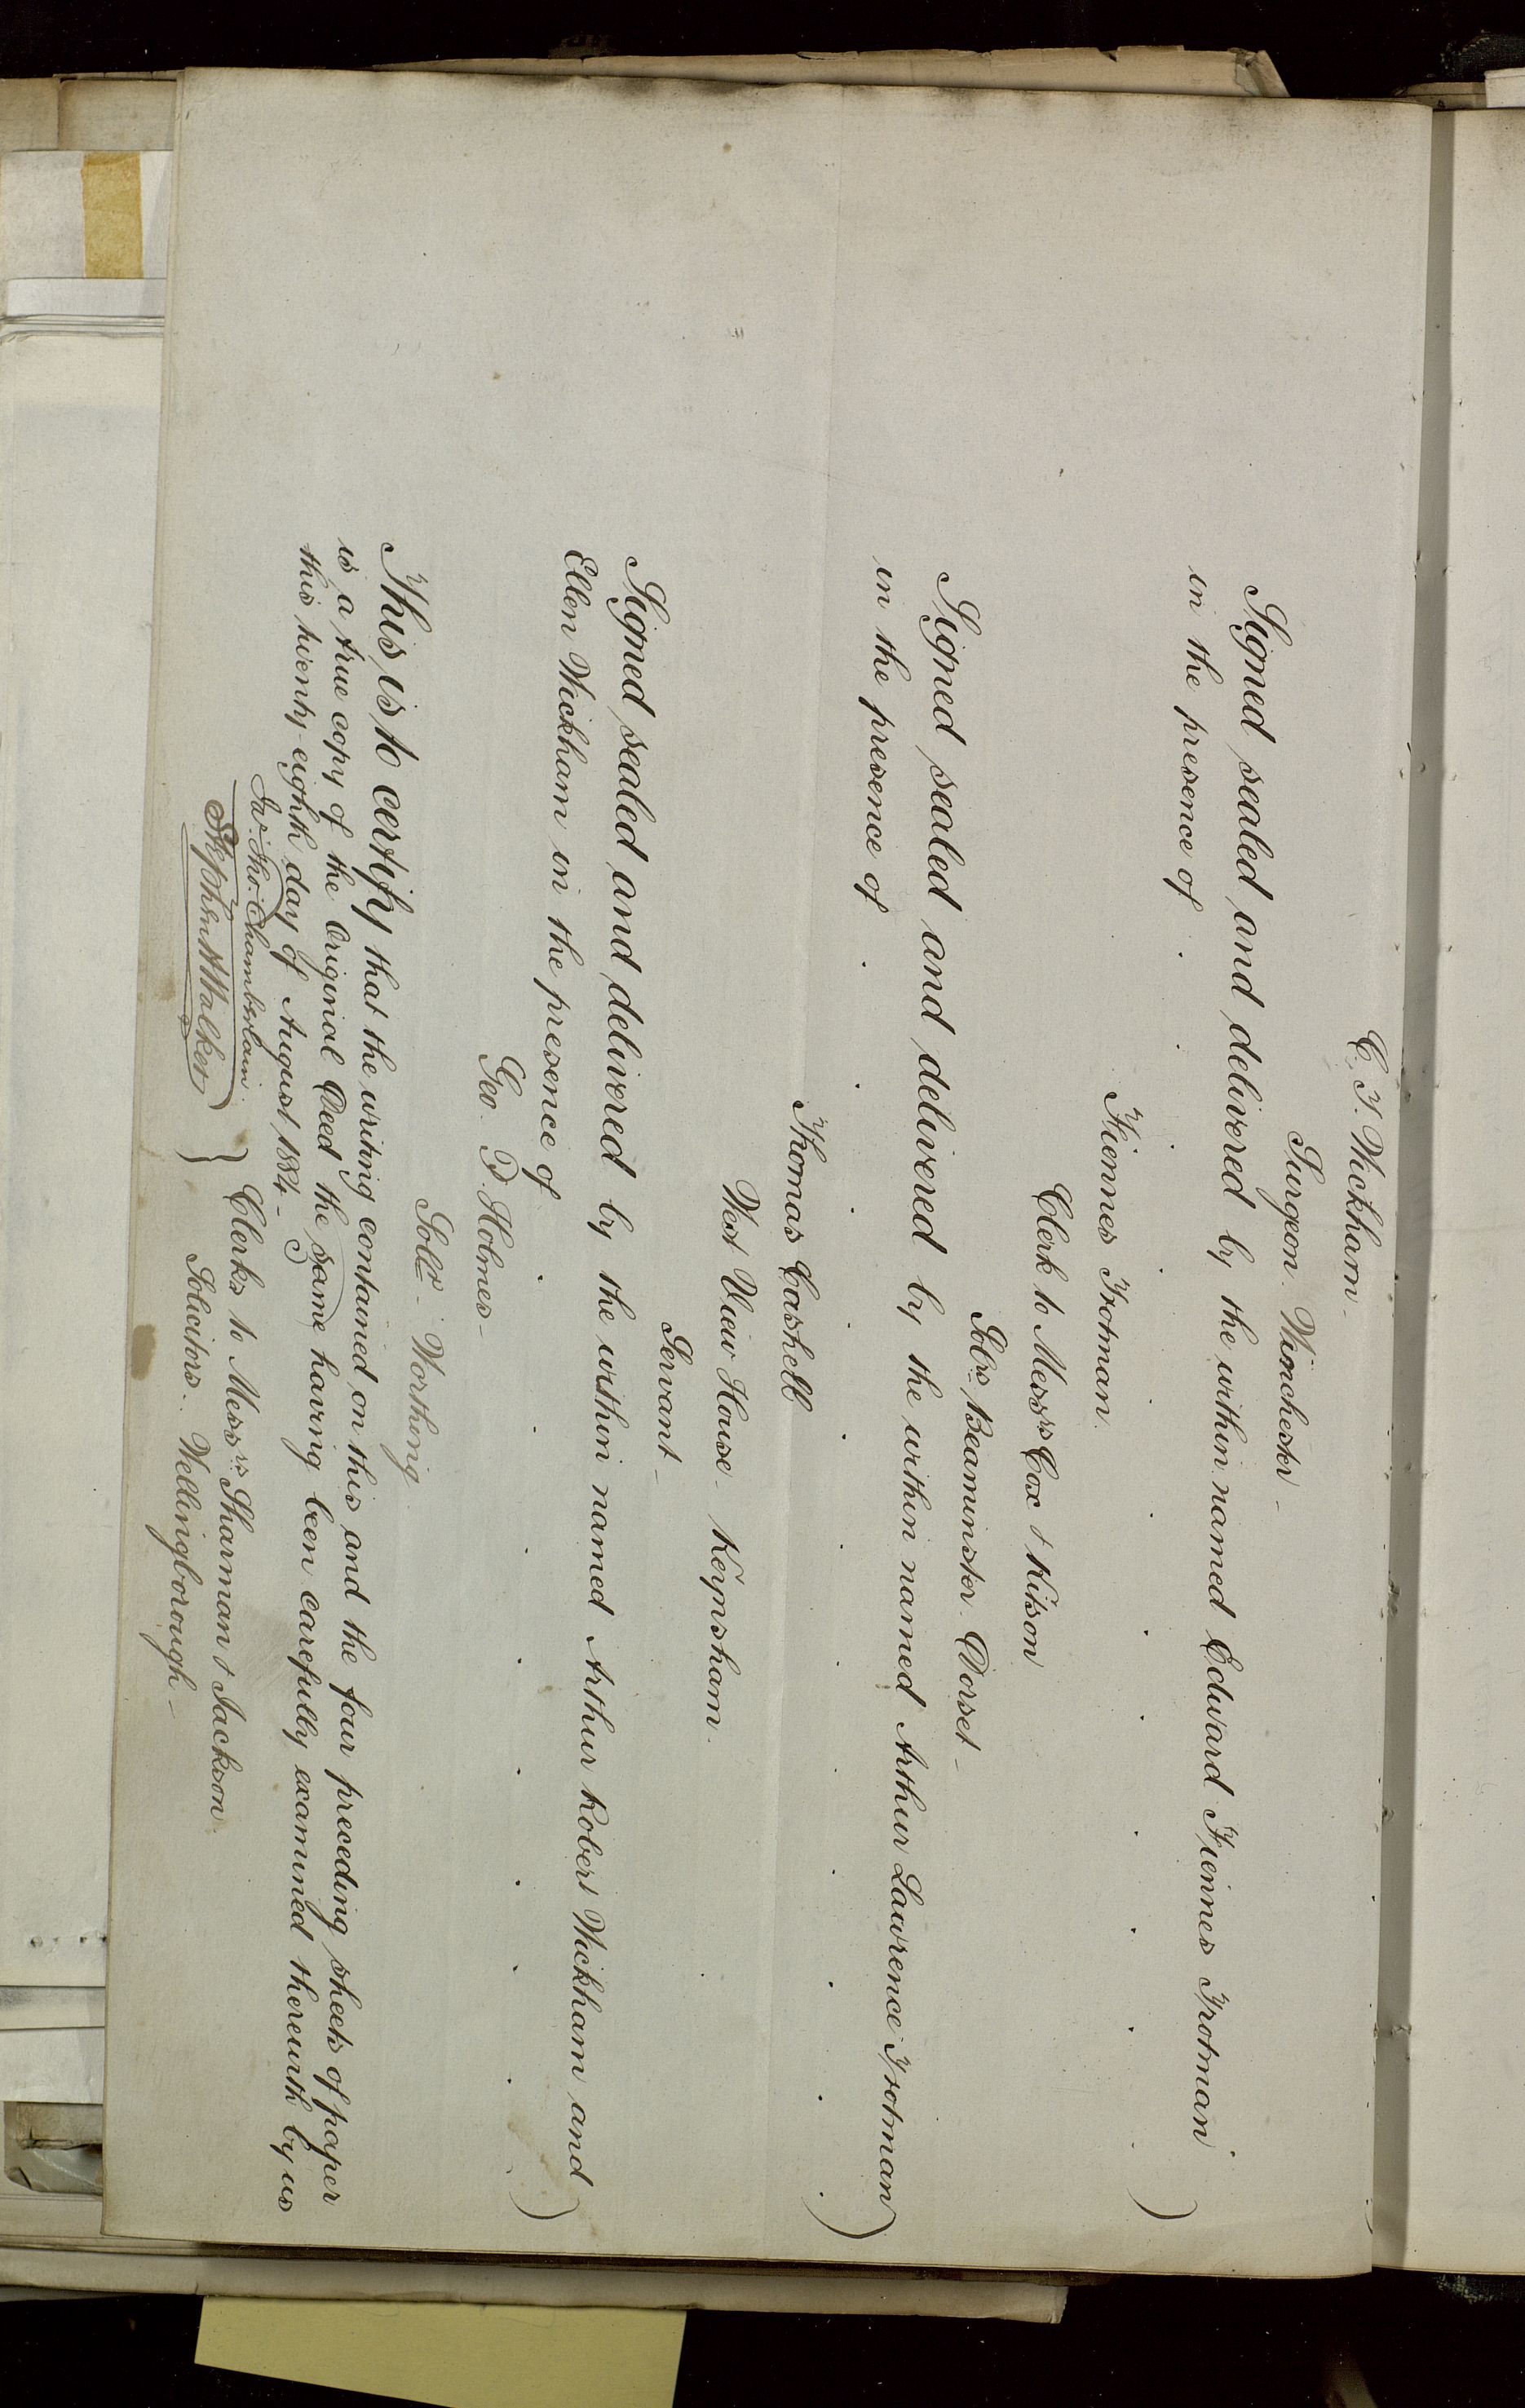 C. T. Wickham
Surgeon. Winchester
Signed sealed and delivered by the within named Edward Fiennes Trotman
in the presence of
Fiennes Trotman
Clerk to Messrs Cox & Kitson
Solrs Beaminster Dorset
Signed sealed and delivered by the within named Arthur Lawrence Trotman
in the presence of
Thomas Cashell
West View House Keynsham
Servant
Signed sealed and delivered by the within named Arthur Robert Wickham and
Ellen Wickham in the presence of
Geo. P. Holmes
Sollr. Worthing
This is to certify that the writing contained on this and the four preceding sheets of paper
is a true copy of the original Deed the same having been carefully examined therewith by us
this twenty eighth day of August 1884
Jas. Tho. Chamberlain } Clerks to Messrs Sharman & Jackson
Stephen H Walker } Solicitors. Wellingborough